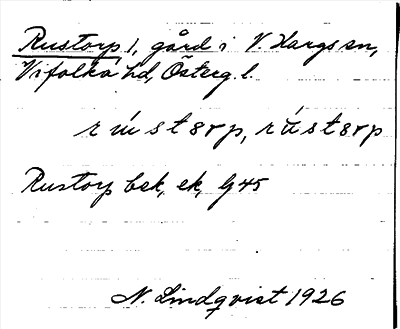 Rustorp 1, gård i V. Hargs sn,
Vifolka hd, Österg. l.
rústorp, rústorp
Rustorp bek, ek, Lg 45
N. Lindqvist 1926